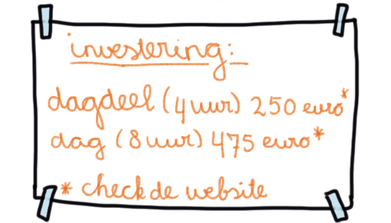 investering:
dagdeel (4 uur) 250 euro*
dag (8 uur) 475 euro*
* check de website